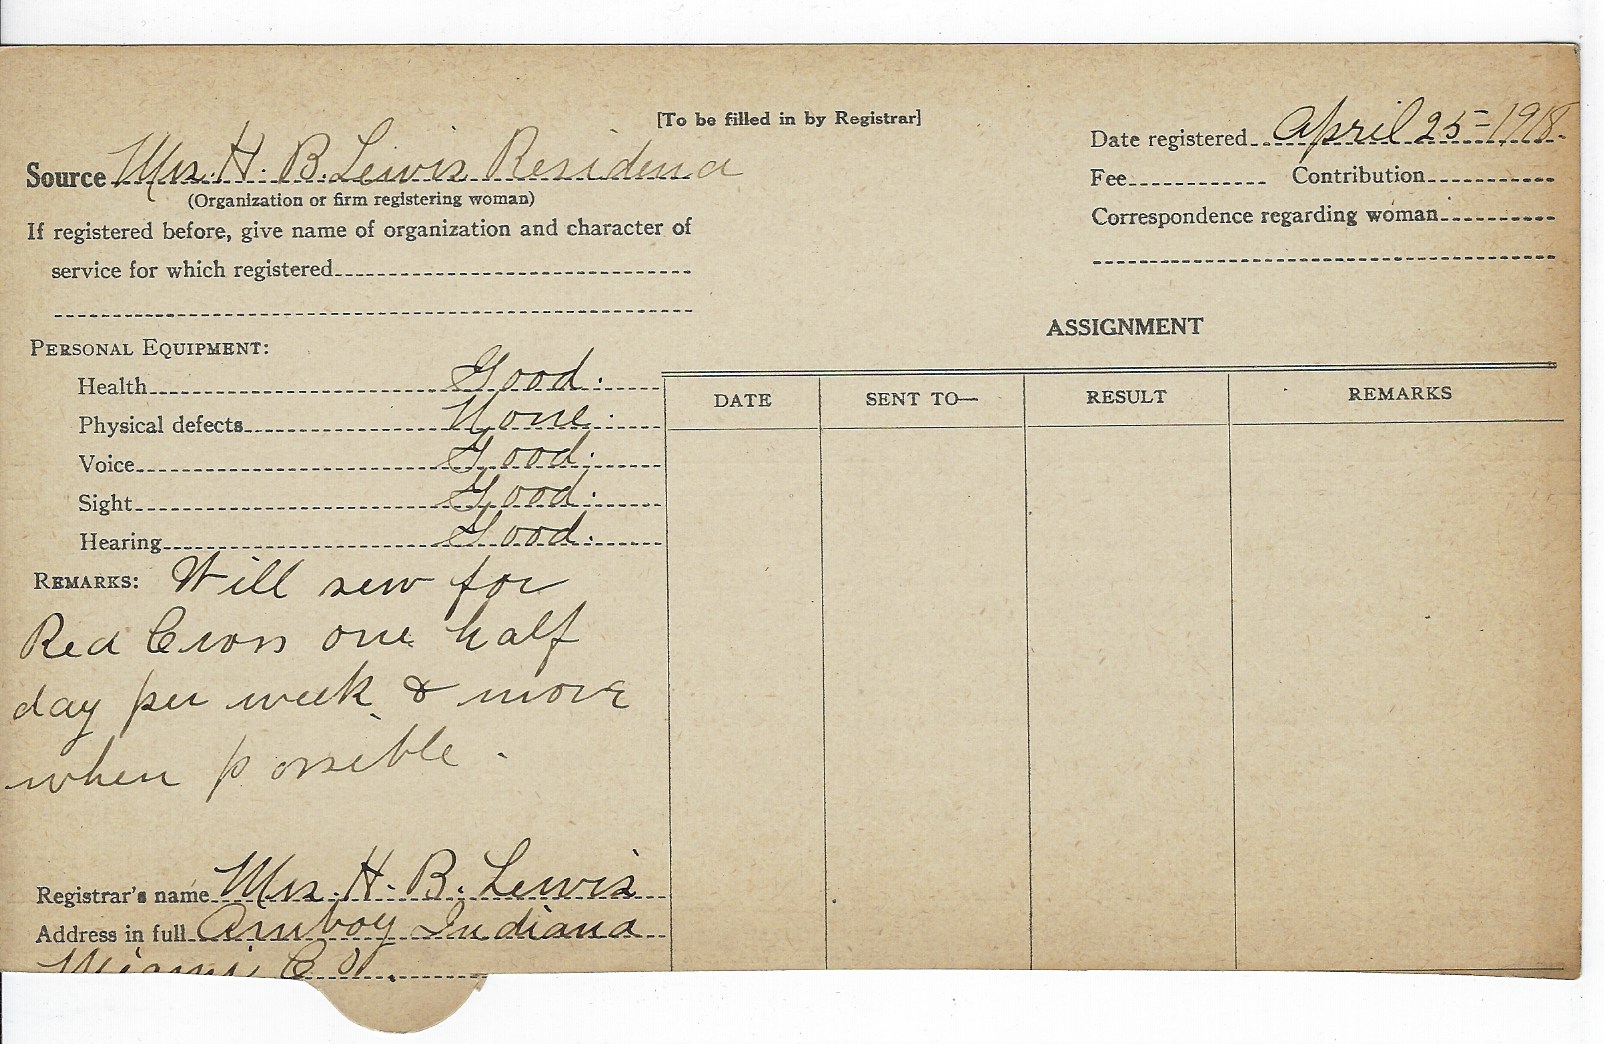 [To be filled in by Registrar]
Source Mrs. H. B. Lewis Residence
(Organization or firm registering woman)
If registered before, give name of organization and character of
service for which registered
Date registered April 25=1918.
Fee Contribution
Correspondence regarding woman
PERSONAL EQUIPMENT:
Health Good.
Physical defects None.
Voice Good.
Sight Good.
Hearing Good.
REMARKS: Will sew for
Red Cross one half
day per week & more
when possible.
Registrar's name Mrs. H. B. Lewis
Address in full Amboy Indiana
Miami Co.
ASSIGNMENT
DATE SENT TO— RESULT REMARKS